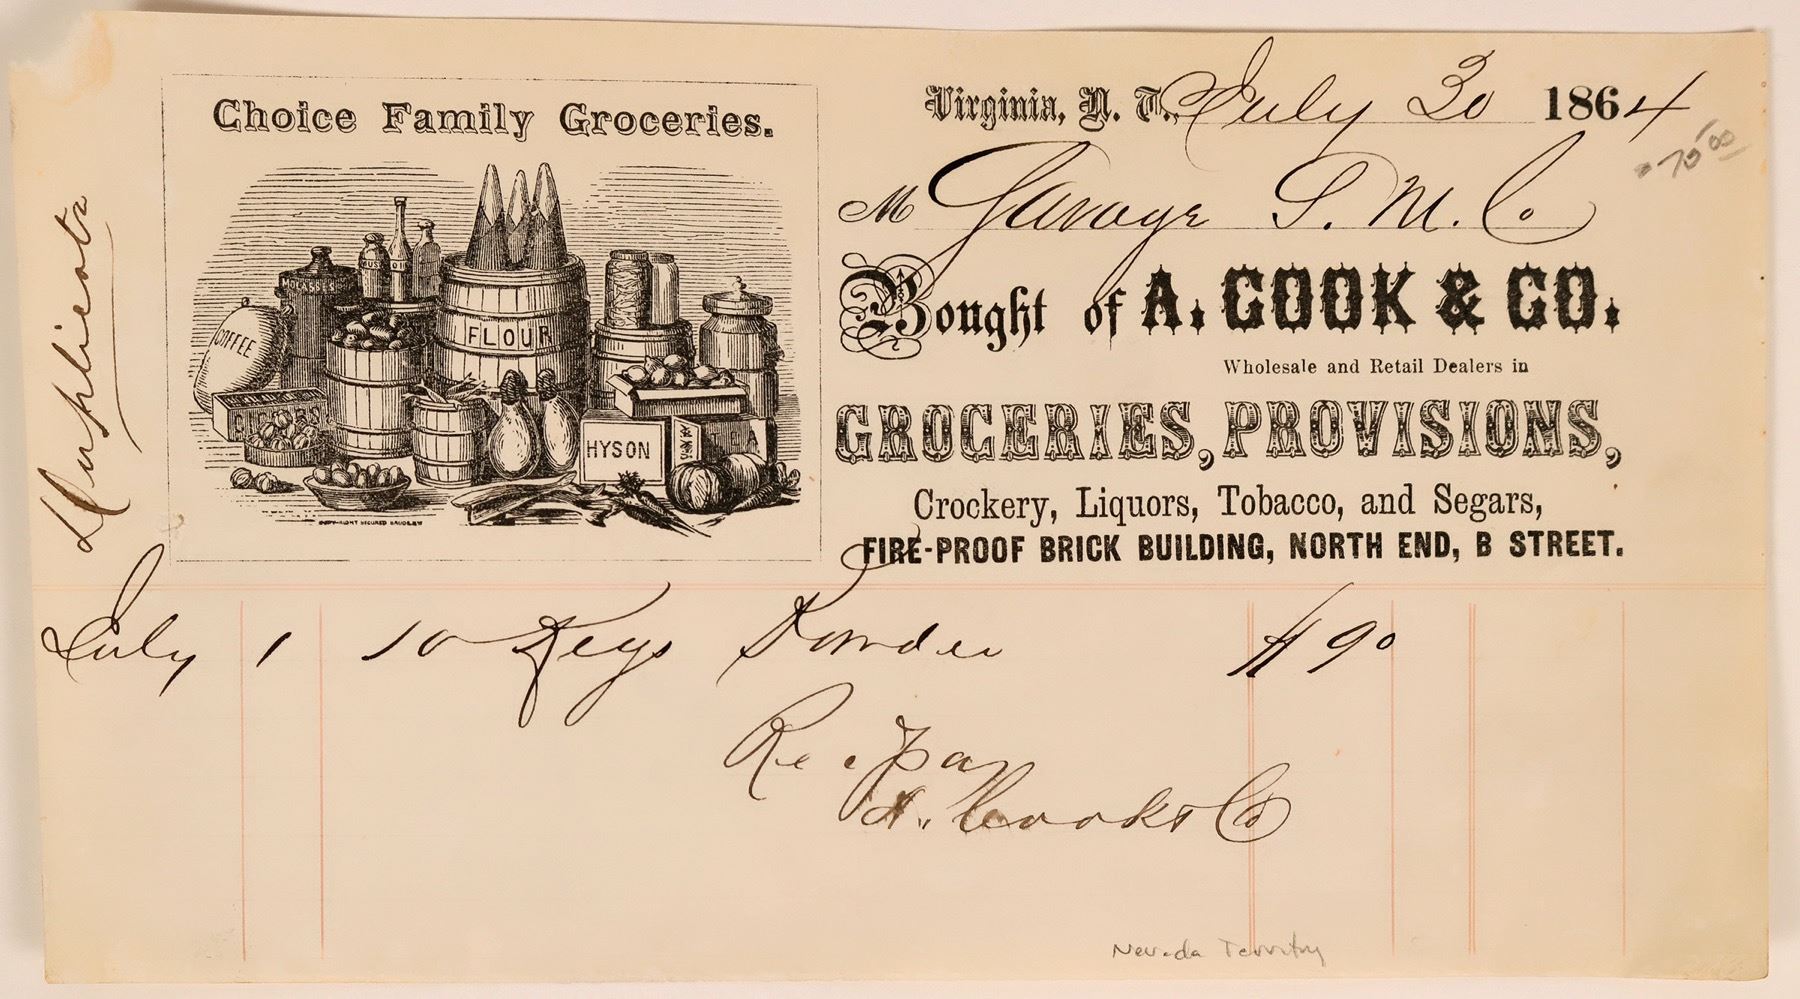 Choice Family Groceries.
MOLASSES
COFFEE
FLOUR
CIGARS
HYSON
TEA
COPY-RIGHT SECURED
Duplicate
Virginia, N. T., July 30 1864
7500
M Savage S. M. Co
Bought of A. COOK & CO.
Wholesale and Retail Dealers in
GROCERIES, PROVISIONS,
Crockery, Liquors, Tobacco, and Segars,
FIRE-PROOF BRICK BUILDING, NORTH END, B STREET.
July 1 10 Kegs Powder $ 90
Rec. Pay
A. Cook & Co
Nevada Territory